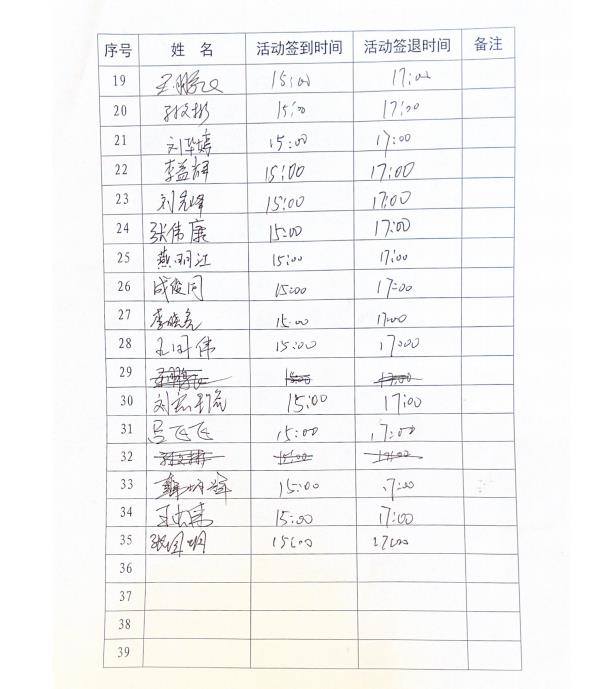 序号 姓 名 活动签到时间 活动签退时间 备注
19 15:00 17:00
20 15:00 17:00
21 刘华婷 15:00 17:00
22 李益辉 15:00 17:00
23 刘光峰 15:00 17:00
24 张伟康 15:00 17:00
25 燕羽江 15:00 17:00
26 成俊同 15:00 17:00
27 李晓亮 15:00 17:00
28 伟 15:00 17:00
29 15:00 17:00
30 刘 15:00 17:00
31 吕飞飞 15:00 17:00
32 15:00 17:00
33 15:00 17:00
34 王 15:00 17:00
35 张 明 15:00 17:00
36
37
38
39